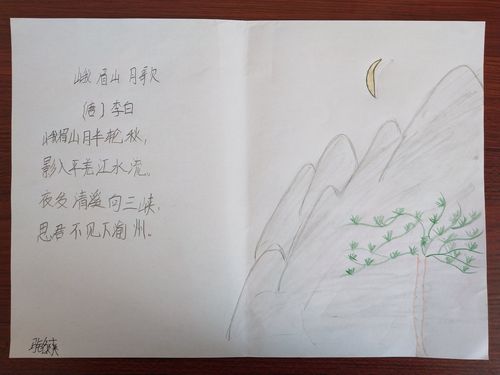 峨眉山月歌
(唐)李白
峨眉山月半轮秋,
影入平羌江水流。
夜发清溪向三峡,
思君不见下渝州。